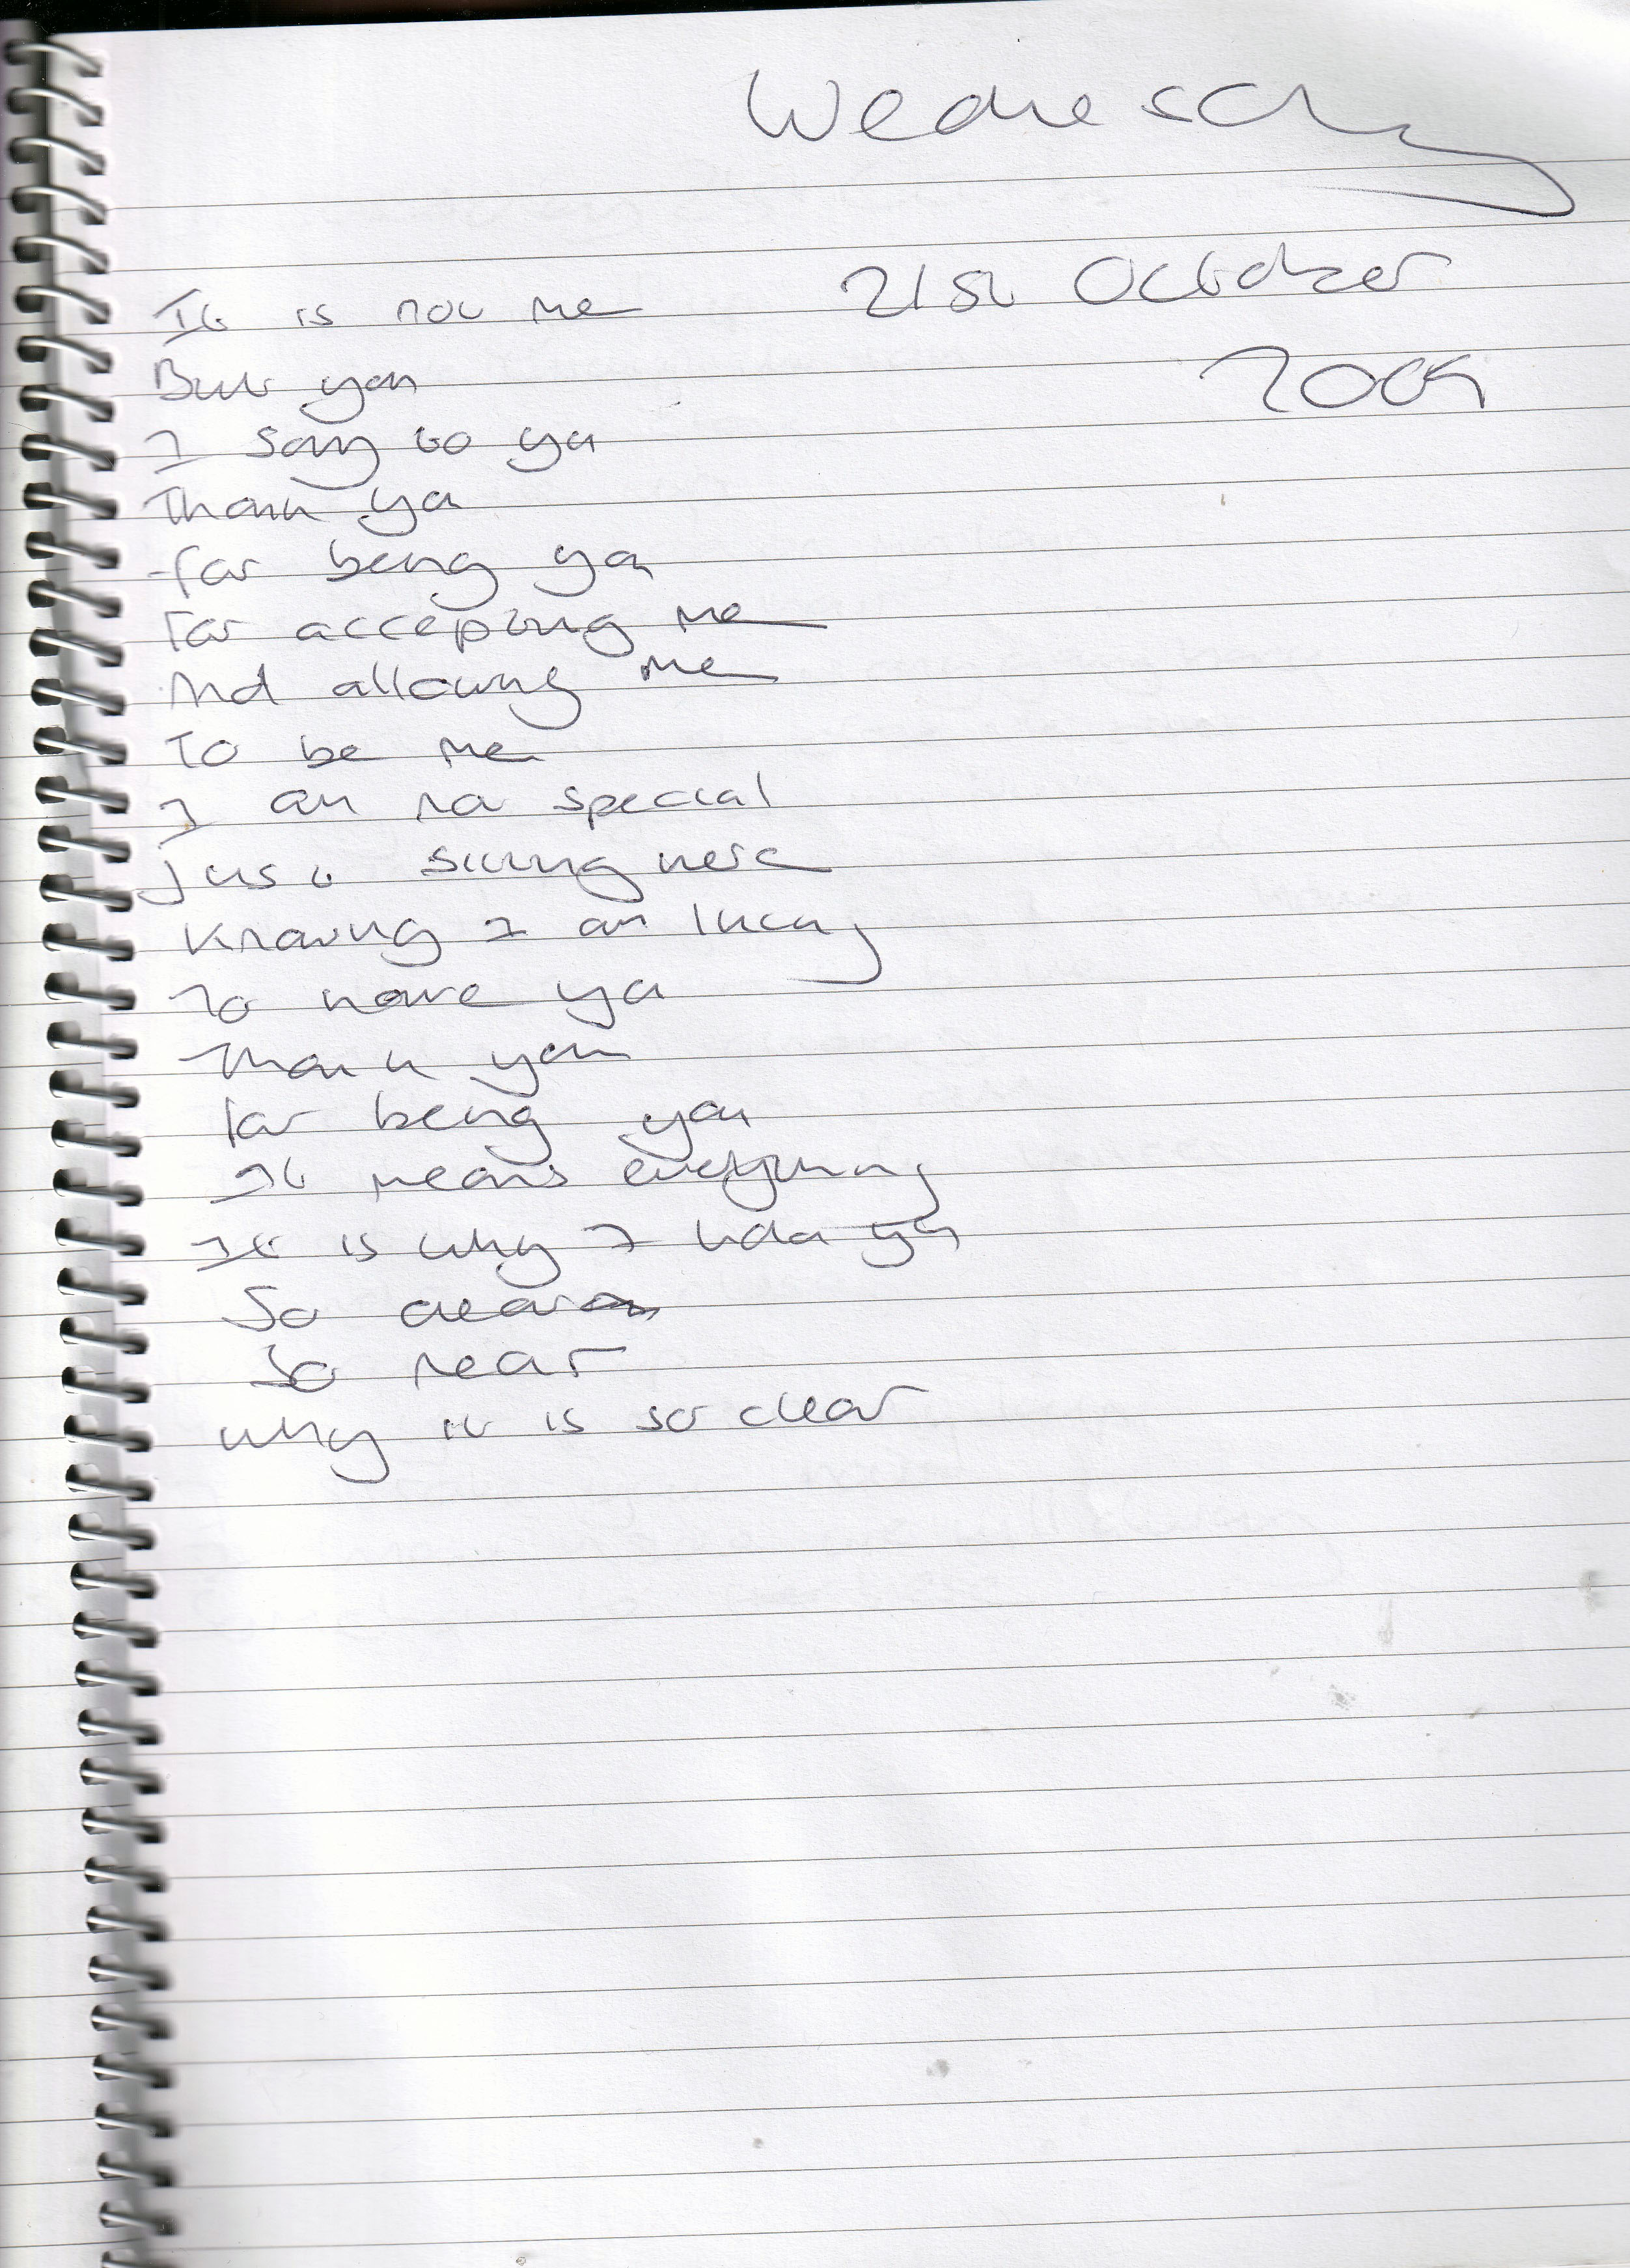 Wednesday
21st October
2009
It is not me
But you
I say to you
Thank you
for being you
For accepting me
And allowing me
To be me
I am no special
just sitting here
Knowing I am lucky
To have you
Thank you
For being you
It means everything
It is why I hold you
So dear
So near
why it is so clear